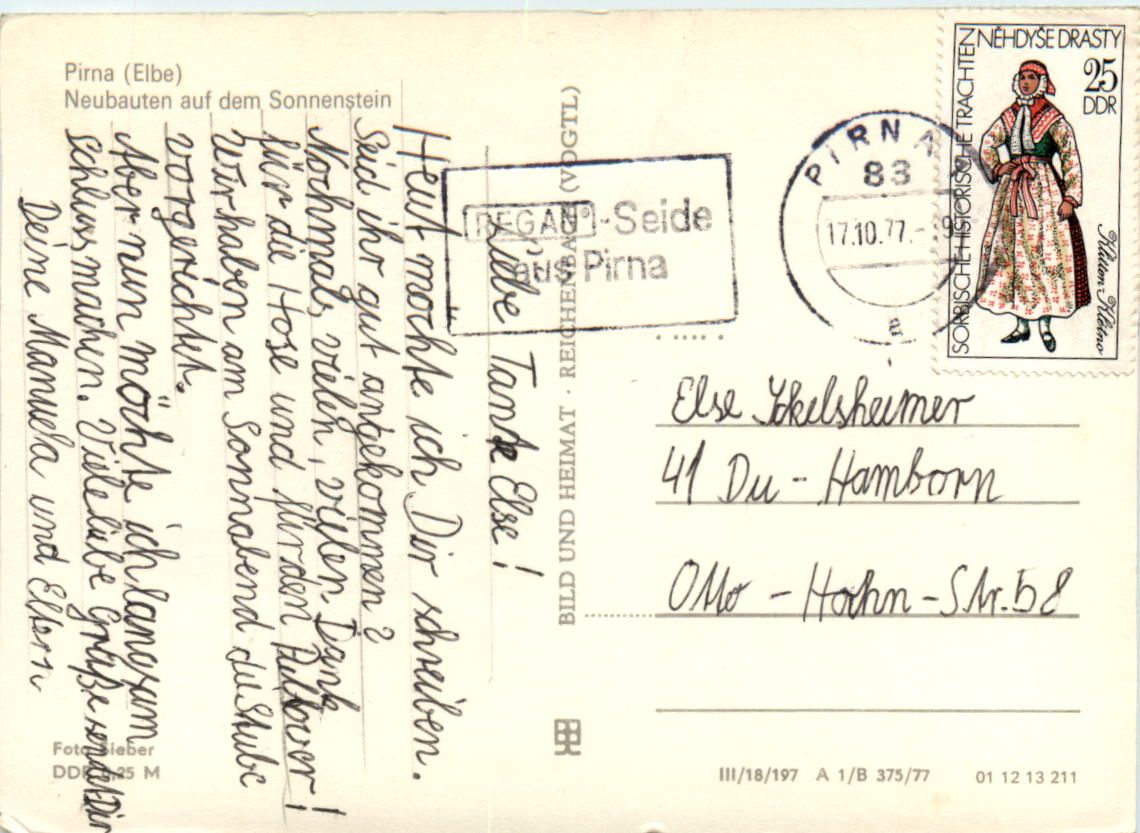 Pirna (Elbe)
Neubauten auf dem Sonnenstein
Liebe Tante Else!
Heut möchte ich Dir schreiben.
Seid ihr gut angekommen?
Nochmals vielen, vielen Dank
für die Hose und für den Pullover!
Wir haben am Sonnabend die Stube
vorgerichtet.
Aber nun möchte ich langsam
Schluss machen. Viele liebe Grüße sendet Dir
Deine Manuela und Eltern
Foto Sieber
DDR 0,25 M
BILD UND HEIMAT · REICHENBACH (VOGTL)
REGAN®-Seide
aus Pirna
PIRNA
83
17.10.77.-9
SORBISCHE HISTORISCHE TRACHTEN
NĚHDYŠE DRASTY
25
DDR
Klitten-Klětno
Else Ickelsheimer
41 Du - Hamborn
Otto - Hahn - Str. 58
III/18/197 A 1/B 375/77 01 12 13 211